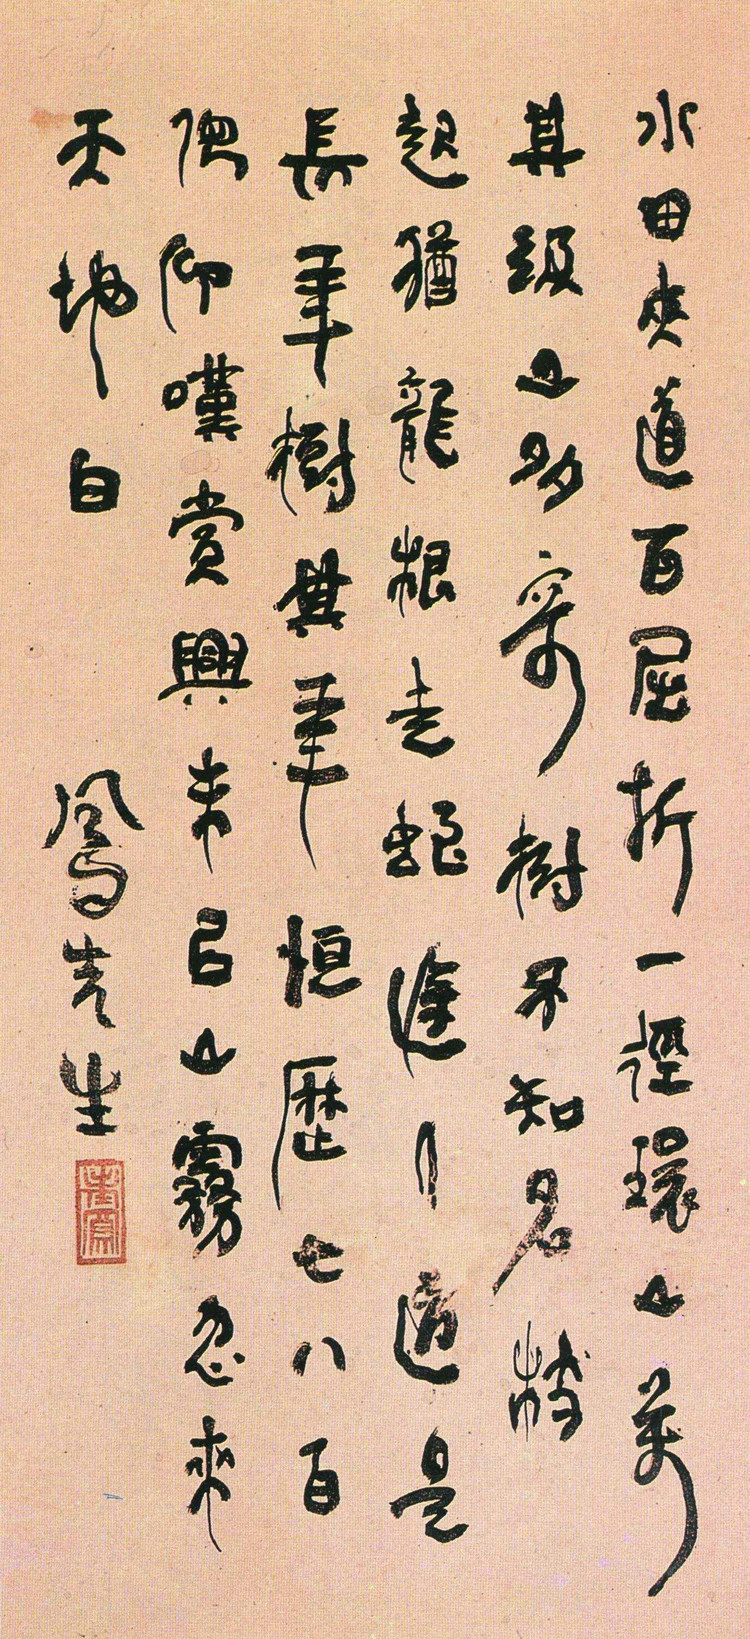 水田夾道百屈折一徑環山萬
其級山多寄樹不知名枝
起猶龍根走蛇塗人道是
長年樹其年恒歷七八百
俛仰嘆賞興未已山霧忽來
天地白
鳳先生